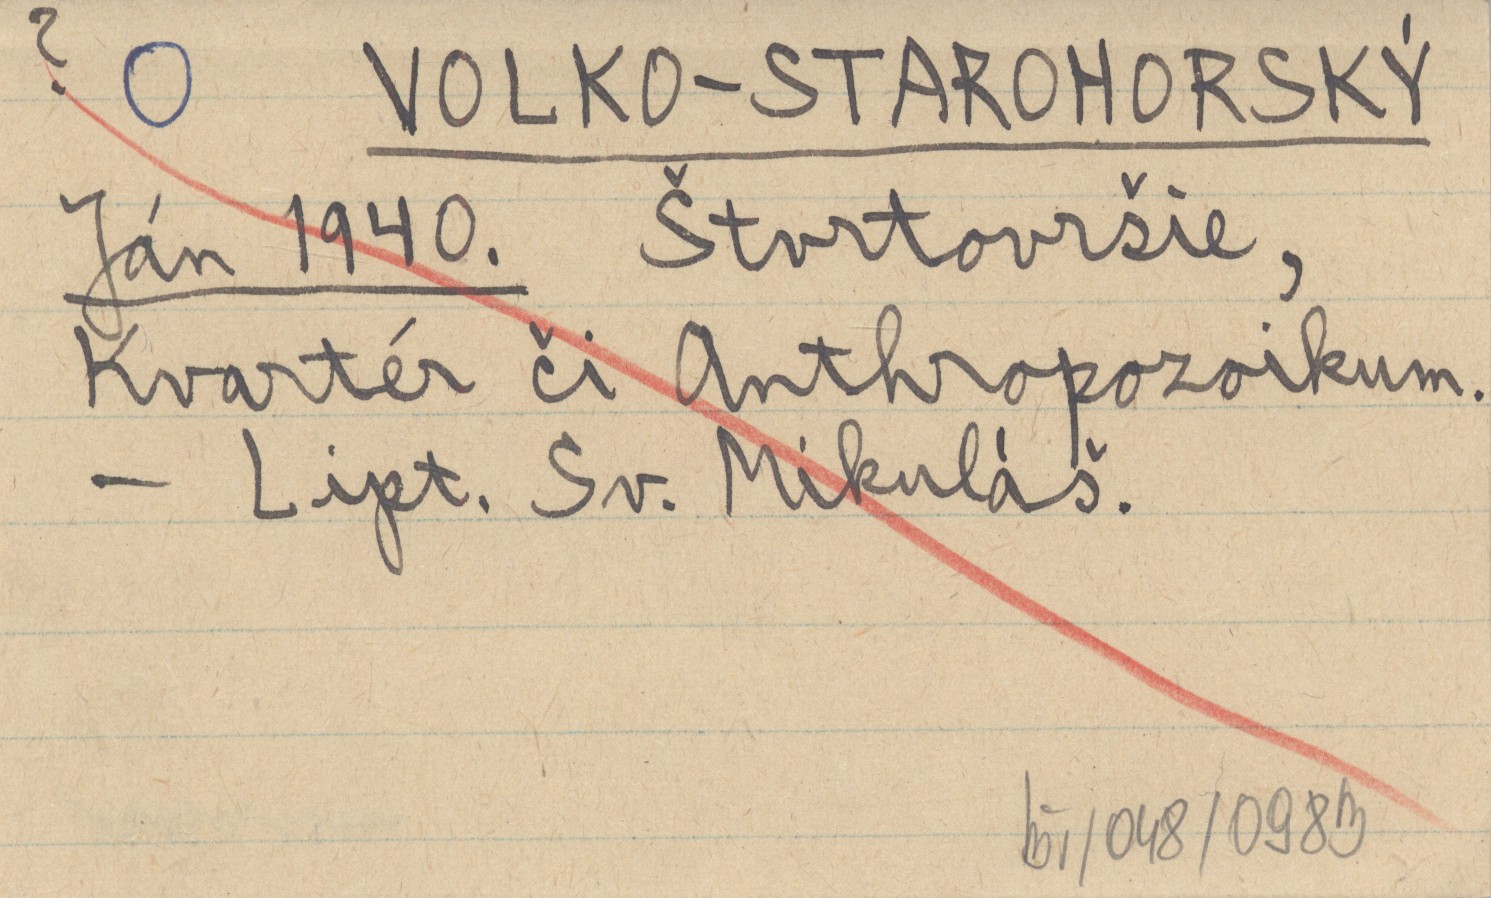 ? O VOLKO-STAROHORSKÝ
Ján 1940. Štvrtovršie,
Kvartér či Anthropozoikum.
– Lipt. Sv. Mikuláš.
/048/098